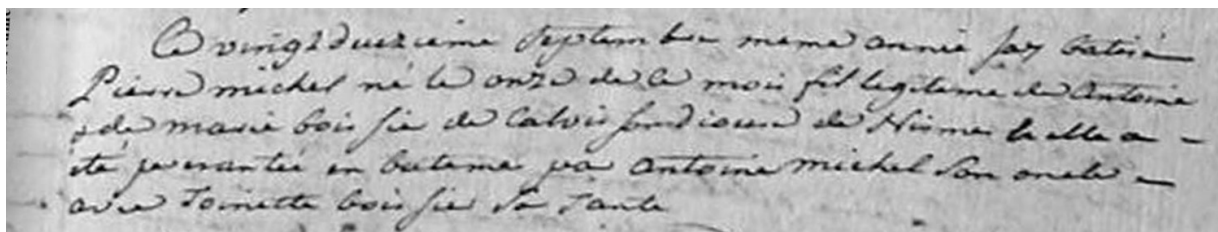 Le vingt duezieme septembre meme année jay batisé
Pierre michel né le onze de ce mois fil legiteme de Antoine
& de marie boissie de Calvisson diocese de Nismes le elle a
été presantée en bateme par antoine michel son oncle
avec Toinette boissie sa Tante